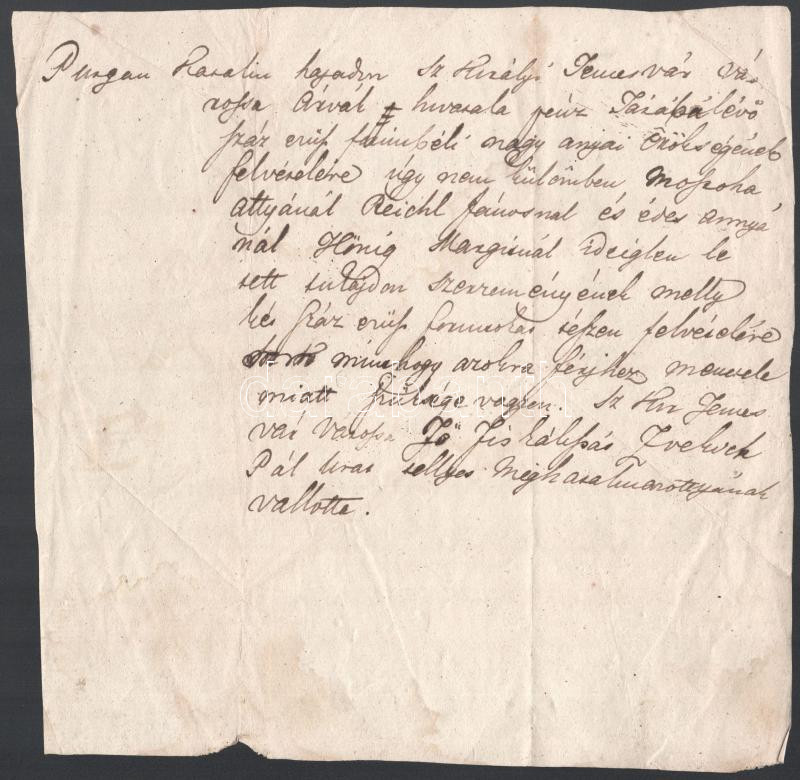 Purgau Rozalin hajadon Sz Királyi Temesvár Vá
rossa Árvái hivatala pénz Tárábá lévő
száz ezüst forintbéli nagy anyai Örökségének
felvételére úgy nem külömben Mostoha
attyánál Reichl Jánosnál és édes annyá
nál Hönig Margitnál ideiglen le
tett tulajdon szerzeményének melly
két száz ezüst forintot tészen felvételére
minthogy azokra férjhez menetele
miatt szüksége vagyon. Sz Kir Temes
vár várossa Fő Fiskálissát
Pál Urat tellyes Meghatalmazottyának
vallotta.